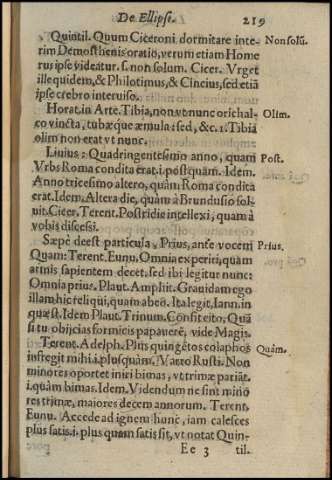 De Ellipsi. 219
Quintil. Quum Ciceroni dormitare inte- Non solū.
rim Demosthenis oratio, verum etiam Home
rus ipse videatur. s. non solum. Cicer. Vrget
ille quidem, & Philotimus, & Cincius, sed etiā
ipse crebro interuiso.
Horat. in Arte. Tibia, non vt nunc orichal- Olim.
co vincta, tubæque æmula: sed, &c. i. Tibia
olim non erat vt nunc.
Liuius: Quadringentesimo anno, quam Post.
Vrbs Roma condita erat. i. postquàm. Idem.
Anno tricesimo altero, quàm Roma condita
erat. Idem. Altera die, quàm à Brundusio sol-
uit. Cicer. Terent. Postridie intellexi, quam à
vobis discessi.
Sæpè deest particula, Prius, ante vocem Prius.
Quam: Terent. Eunu. Omnia experiri, quàm
armis sapientem decet, sed ibi legitur nunc:
Omnia prius. Plaut. Amphit. Grauidam ego
illam hic reliqui, quam abeo. Ita legit, Iann. in
quæst. Idem Plaut. Trinum. Confiteito, Quā
si tu objicias formicis papauerē, vide Magis.
Terent. Adelph. Plus quingētos colaphos Quàm.
infregit mihi. i. plusquàm. Varro Rusti. Non
minores oportet iniri bimas, vt trimæ pariāt.
i. quàm bimas. Idem. Videndum ne sint mino
res trimæ, maiores decem annorum. Terent.
Eunu. Accede ad ignem hunc, iam calesces
plus satis. i. plus quam satis sit, vt notat Quin-
Ee 3 til.